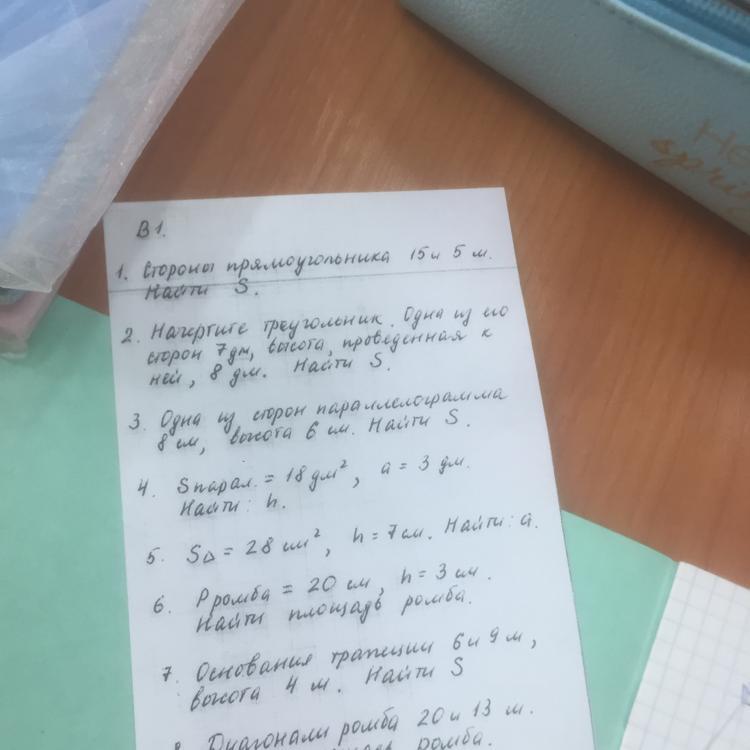 В1.
1. Стороны прямоугольника 15 и 5 м.
Найти S.
2. Начертите треугольник. Одна из его
сторон 7 дм, высота, проведенная к
ней, 8 дм. Найти S.
3. Одна из сторон параллелограмма
8 см, высота 6 см. Найти S.
4. Sпарал. = 18 дм², a = 3 дм.
Найти: h.
5. S△ = 28 см², h = 7 см. Найти: a.
6. Pромба = 20 см, h = 3 см.
Найти площадь ромба.
7. Основания трапеции 6 и 9 м,
высота 4 м. Найти S
8. Диагонали ромба 20 и 13 м.
площадь ромба.